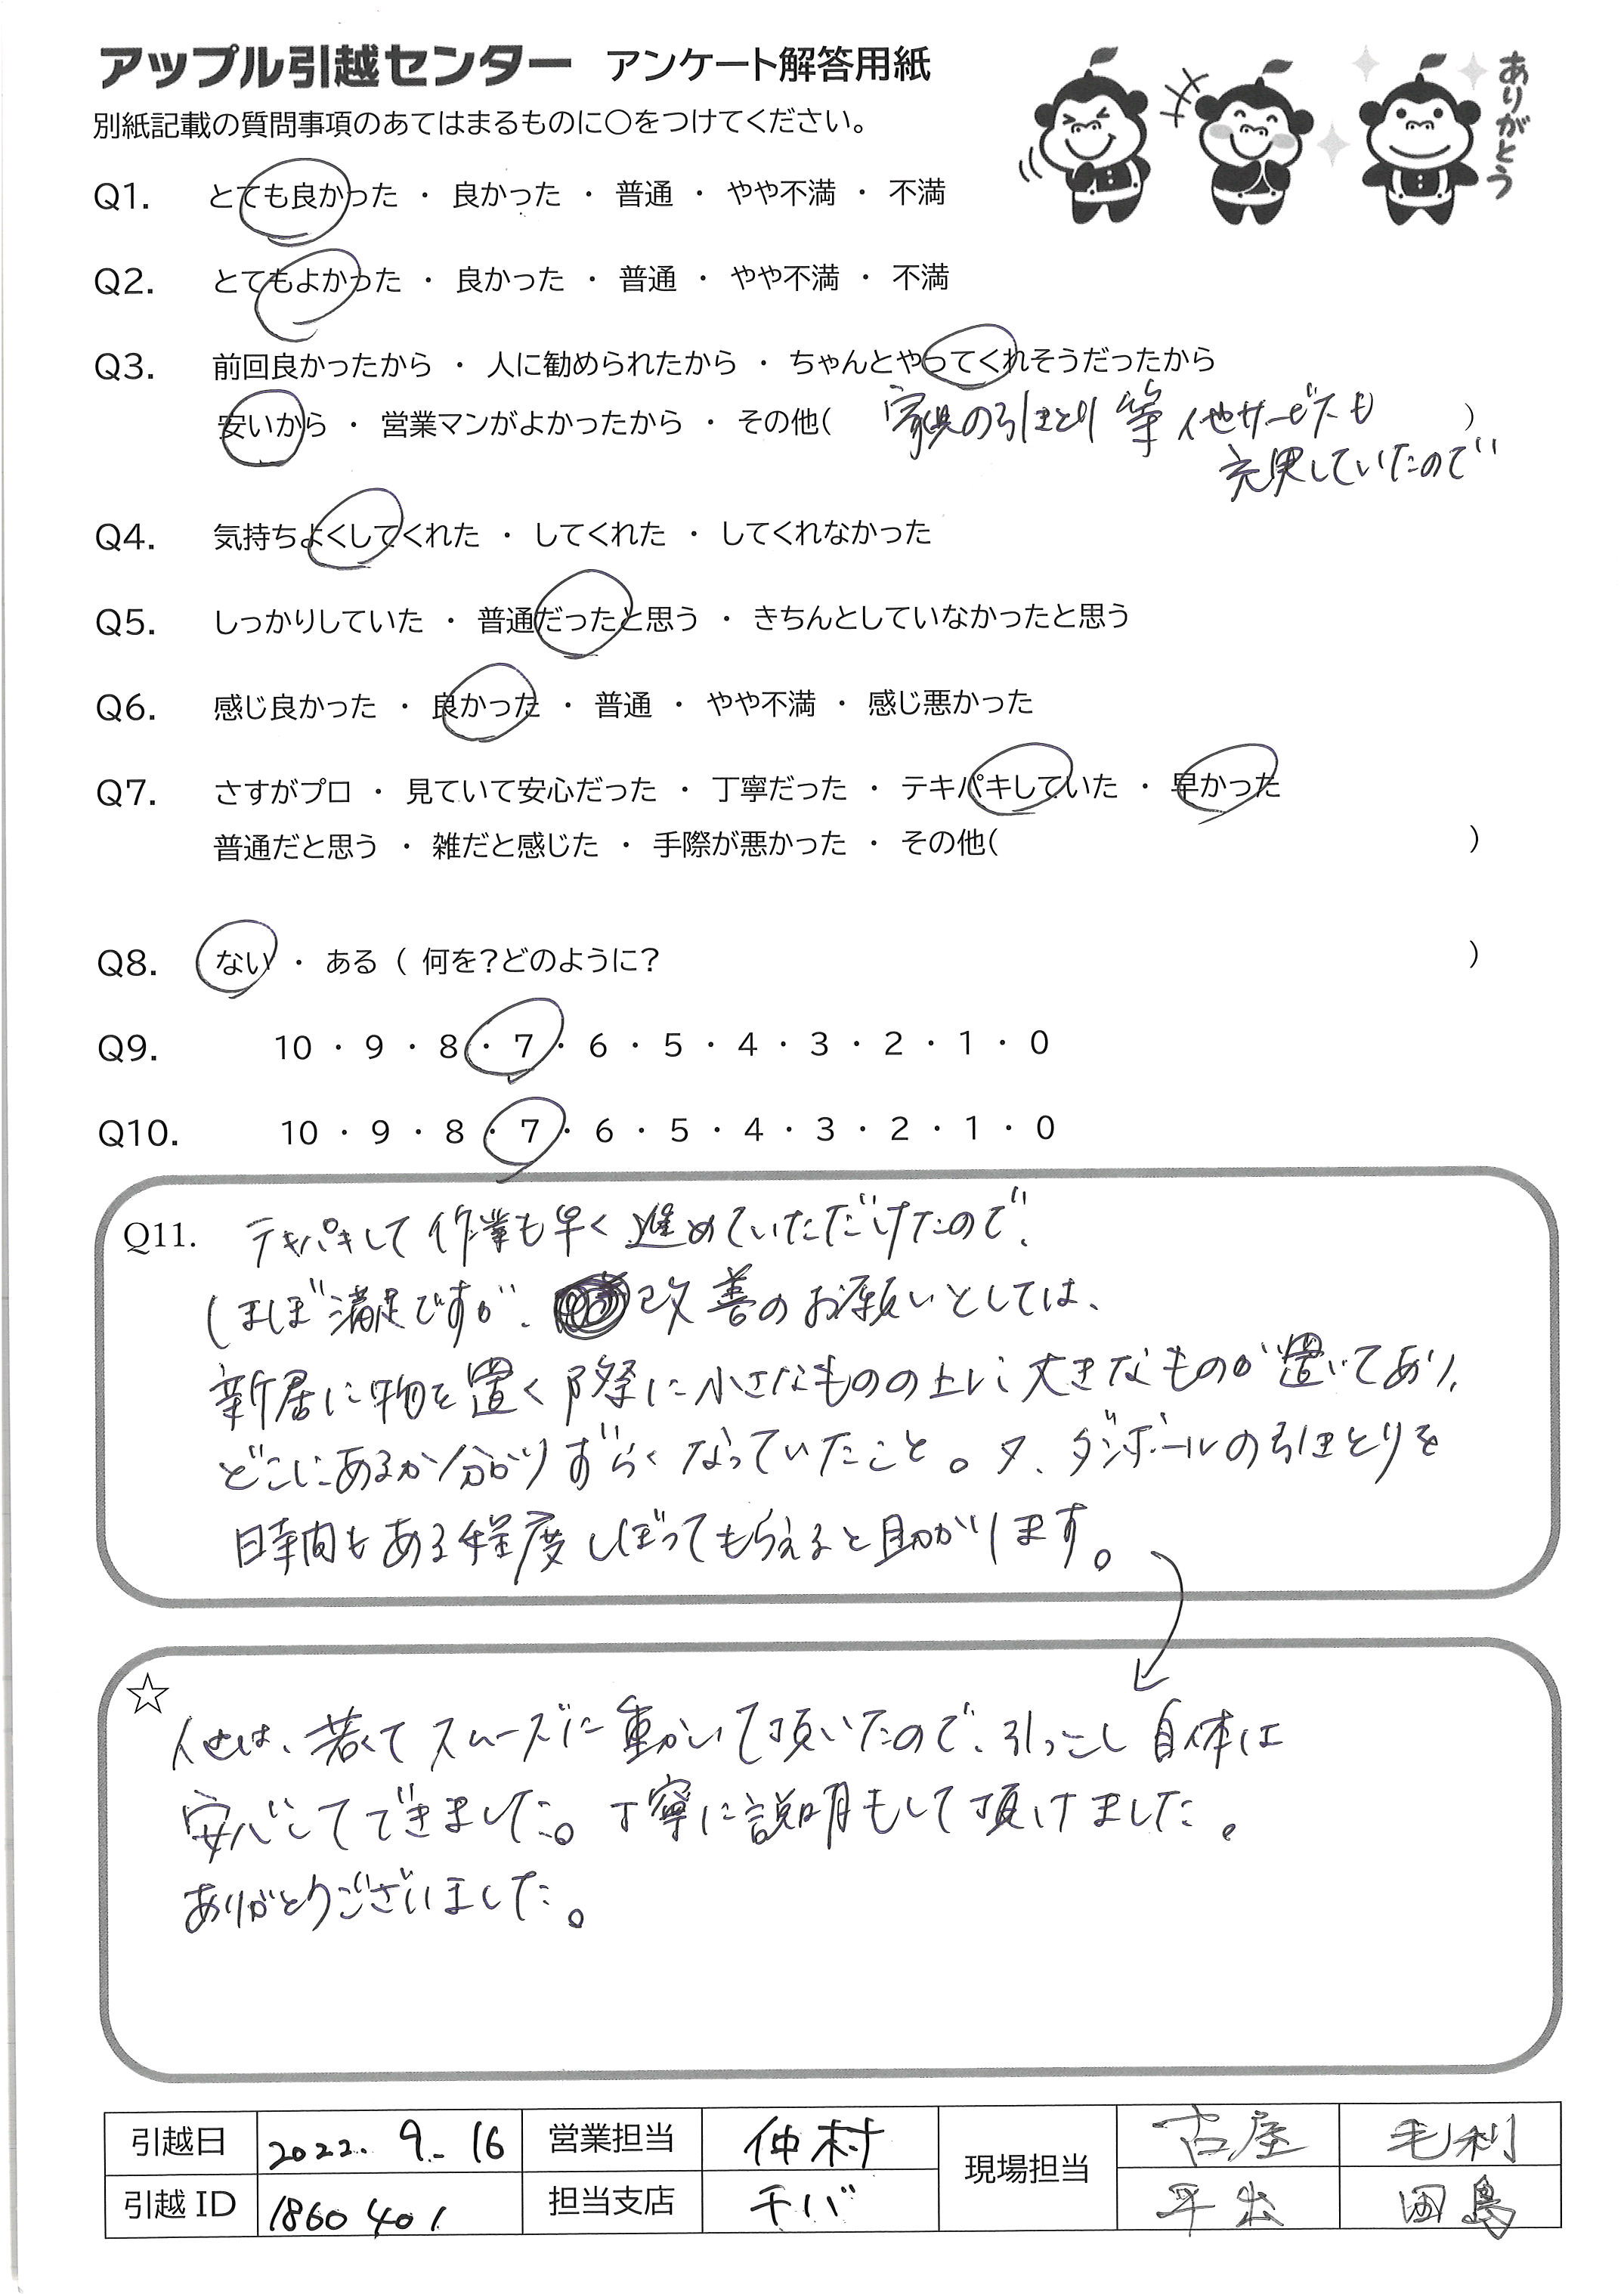 アップル引越センター アンケート解答用紙
ありがとう
別紙記載の質問事項のあてはまるものに〇をつけてください。
Q1. とても良かった ・ 良かった ・ 普通 ・ やや不満 ・ 不満
Q2. とてもよかった ・ 良かった ・ 普通 ・ やや不満 ・ 不満
Q3. 前回良かったから ・ 人に勧められたから ・ ちゃんとやってくれそうだったから
安いから ・ 営業マンがよかったから ・ その他( 家具の引きとり等 他サービスも )
充実していたので
Q4. 気持ちよくしてくれた ・ してくれた ・ してくれなかった
Q5. しっかりしていた ・ 普通だったと思う ・ きちんとしていなかったと思う
Q6. 感じ良かった ・ 良かった ・ 普通 ・ やや不満 ・ 感じ悪かった
Q7. さすがプロ ・ 見ていて安心だった ・ 丁寧だった ・ テキパキしていた ・ 早かった
普通だと思う ・ 雑だと感じた ・ 手際が悪かった ・ その他( )
Q8. ない ・ ある ( 何を?どのように? )
Q9. 10 ・ 9 ・ 8 ・ 7 ・ 6 ・ 5 ・ 4 ・ 3 ・ 2 ・ 1 ・ 0
Q10. 10 ・ 9 ・ 8 ・ 7 ・ 6 ・ 5 ・ 4 ・ 3 ・ 2 ・ 1 ・ 0
Q11. テキパキして作業も早く進めていただけたので、
ほぼ満足ですが、改善のお願いとしては、
新居に物を置く際に小さなものの上に大きなものが置いてあり、
どこにあるか分かりずらくなっていたこと。又、ダンボールの引きとりを
時間もある程度しぼってもらえると助かります。
☆
他は、若くてスムーズに動いて頂いたので、引っこし自体は
安心してできました。丁寧に説明もして頂けました。
ありがとうございました。
引越日 2022. 9. 16 営業担当 仲村 現場担当 古屋 毛利
引越ID 1860401 担当支店 千バ 平出 田島